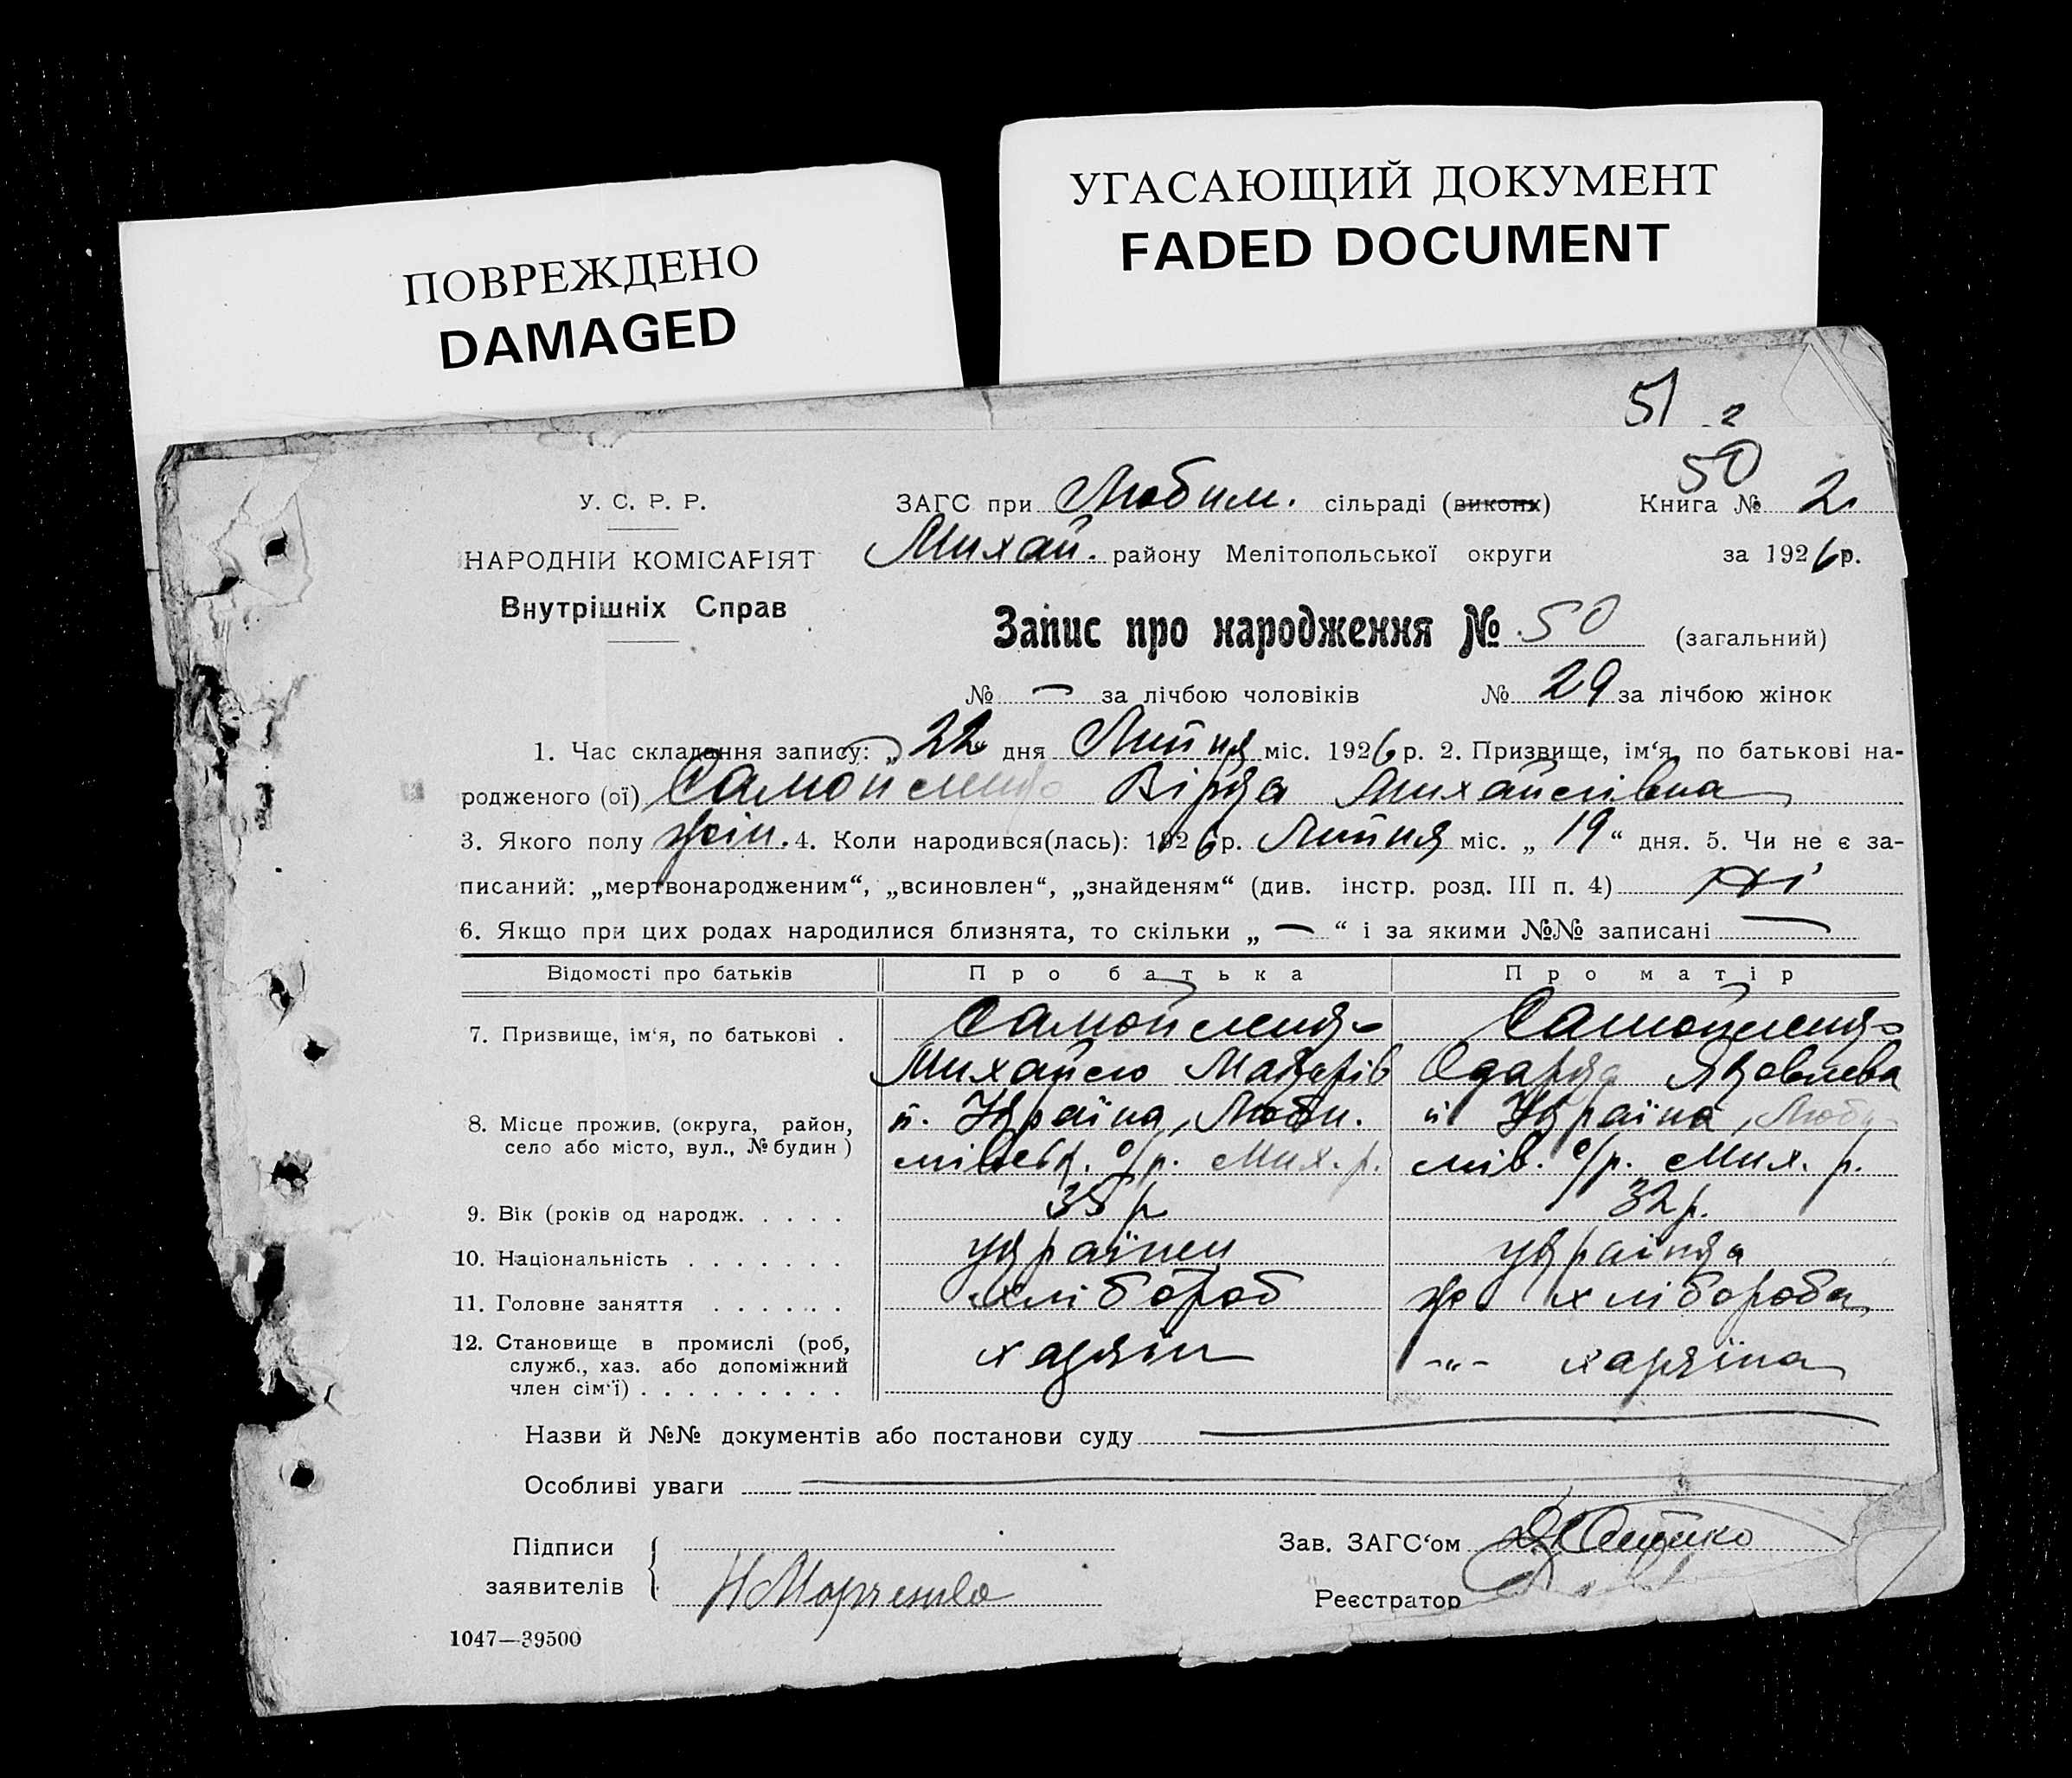 ПОВРЕЖДЕНО
DAMAGED
УГАСАЮЩИЙ ДОКУМЕНТ
FADED DOCUMENT
51 2
50
У. С. Р. Р. ЗАГС при Любим. сільраді (виконк) Книга № 2
НАРОДНІЙ КОМІСАРІЯТ Михай. району Мелітопольської округи за 1926 р.
Внутрішніх Справ
Запис про народження № 50 (загальний)
№ — за лічбою чоловіків № 29 за лічбою жінок
1. Час складання запису: „22 дня Липня міс. 1926 р. 2. Призвище, ім'я, по батькові на-
родженого (ої) Самойленко Вірка Михайлівна
3. Якого полу жін. 4. Коли народився(лась): 1926 р. Липня міс. „19“ дня. 5. Чи не є за-
писаний: „мертвонародженим“, „всиновлен“, „знайденям“ (див. інстр. розд. III п. 4) ні
6. Якщо при цих родах народилися близнята, то скільки „—“ і за якими №№ записані —
Відомості про батьків Про батька Про матір
7. Призвище, ім'я, по батькові . Самойленко Самойленко
Михайло Макарів Одарка Яковлева
8. Місце прожив. (округа, район, село або місто, вул., № будин) Україна, Люби. Україна, Люби
мівськ. с/р. Мих. р. мів. с/р. Мих. р.
9. Вік (років од народж. . . . . 35 р. 32 р.
10. Національність . . . . . . . українец українка
11. Головне заняття . . . . . . хлібороб ж. хлібороба
12. Становище в промислі (роб, служб., хаз. або допоміжний член сім'ї) . . . . . . . . . хазяін -„- хазяїна
Назви й №№ документів або постанови суду —
Особливі уваги —
Підписи заявителів Н Марченко
Зав. ЗАГС'ом
Реєстратор
1047—39500